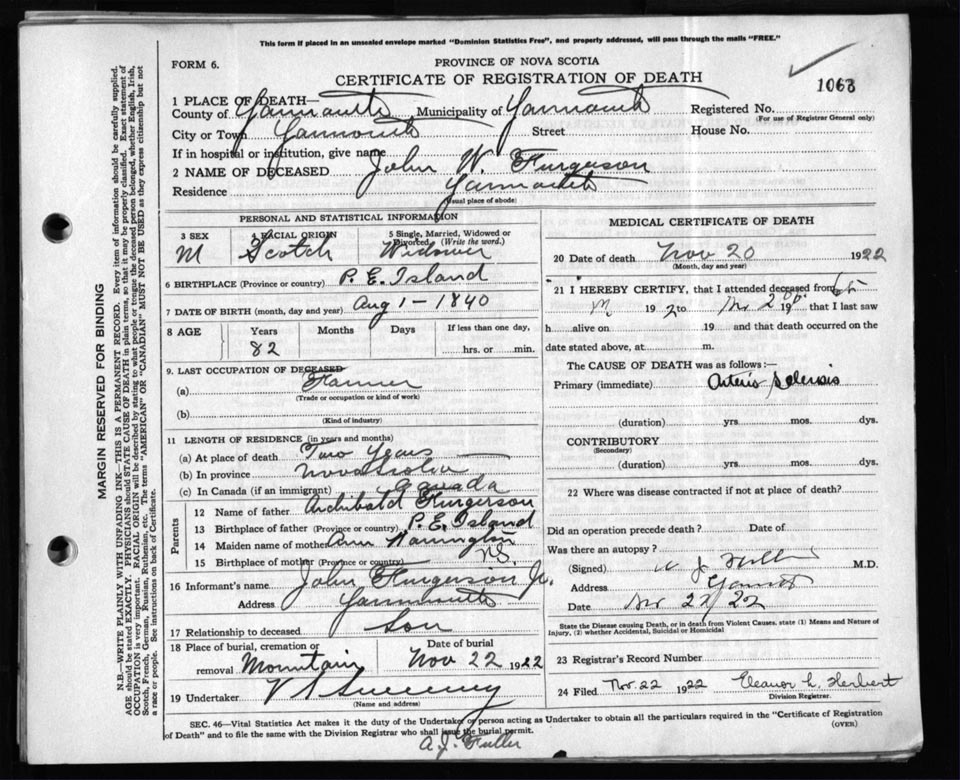 This form if placed in an unsealed envelope marked "Dominion Statistics Free", and properly addressed, will pass through the mails "FREE."
FORM 6.
PROVINCE OF NOVA SCOTIA
CERTIFICATE OF REGISTRATION OF DEATH
1068
1 PLACE OF DEATH—
County of Yarmouth Municipality of Yarmouth Registered No.
(For use of Registrar General only)
City or Town Yarmouth Street House No.
If in hospital or institution, give name
2 NAME OF DECEASED John W. Furgerson
Residence Yarmouth
(Usual place of abode)
PERSONAL AND STATISTICAL INFORMATION
3 SEX M
4 RACIAL ORIGIN Scotch
5 Single, Married, Widowed or Divorced, (Write the word.) Widower
6 BIRTHPLACE (Province or country) P. E. Island
7 DATE OF BIRTH (month, day and year) Aug 1 - 1840
8 AGE Years Months Days If less than one day,
82 hrs. or min.
9. LAST OCCUPATION OF DECEASED
(a) Farmer
(Trade or occupation or kind of work)
(b)
(Kind of industry)
11 LENGTH OF RESIDENCE (in years and months)
(a) At place of death Two Years
(b) In province Nova Scotia
(c) In Canada (if an immigrant) Canada
Parents
12 Name of father Archibald Furgerson
13 Birthplace of father (Province or country) P. E. Island
14 Maiden name of mother Ann Harrington
15 Birthplace of mother (Province or country) N.S.
16 Informant's name John Furgerson Jr.
Address Yarmouth
17 Relationship to deceased Son
18 Place of burial, cremation or removal Mountain
Date of burial Nov 22 1922
19 Undertaker V S Sweeney
(Name and address)
MEDICAL CERTIFICATE OF DEATH
20 Date of death Nov 20 1922
(Month, day and year)
21 I HEREBY CERTIFY, that I attended deceased from
192 19 that I last saw
h alive on 19 and that death occurred on the
date stated above, at m.
The CAUSE OF DEATH was as follows:—
Primary (immediate) Arterio Sclerosis
(duration) yrs. mos. dys.
CONTRIBUTORY
(Secondary)
(duration) yrs. mos. dys.
22 Where was disease contracted if not at place of death?
Did an operation precede death? Date of
Was there an autopsy?
(Signed) A J Fuller M.D.
Address Yarmouth
Date Nov 22/22
State the Disease causing Death, or in death from Violent Causes, state (1) Means and Nature of
Injury, (2) whether Accidental, Suicidal or Homicidal
23 Registrar's Record Number
24 Filed Nov. 22 1922 Eleanor L. Herbert
Division Registrar.
SEC. 46—Vital Statistics Act makes it the duty of the Undertaker or person acting as Undertaker to obtain all the particulars required in the "Certificate of Registration
of Death" and to file the same with the Division Registrar who shall issue the burial permit.
(OVER)
A. J. Fuller
MARGIN RESERVED FOR BINDING
N.B.—WRITE PLAINLY WITH UNFADING INK—THIS IS A PERMANENT RECORD. Every item of information should be carefully supplied.
AGE should be stated EXACTLY. PHYSICIANS should STATE CAUSE OF DEATH in plain terms, so that it may be properly classified. Exact statement of
OCCUPATION is very important. RACIAL ORIGIN will be described by stating to what people or tongue the deceased person belonged, whether English, Irish,
Scotch, French, German, Russian, Ruthenian, etc. The terms "AMERICAN" or "CANADIAN" MUST NOT BE USED as they express citizenship but not
a race or people. See instructions on back of Certificate.